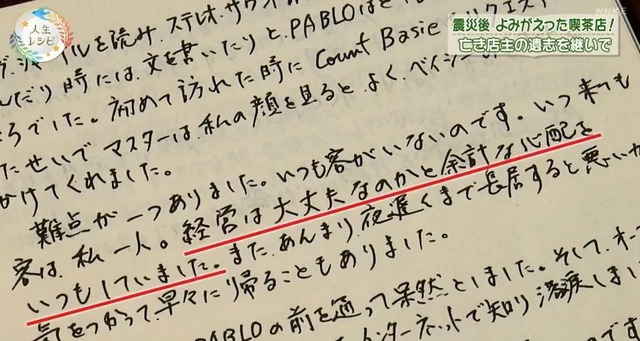 NHK
人生レシピ
震災後 よみがえった喫茶店！
亡き店主の遺志を継いで
ジャーナルを読み、ステレオ・サウンド
んだり時には、文を書いたりと、PABLOは
ろでした。初めて訪れた時に Count Basie をリクエスト
たせいで、マスターは、私の顔を見ると、よく、ベイシー
かけてくれました。
難点が一つありました。いつも客がいないのです。いつ来ても
客は、私一人。経営は大丈夫なのかと余計な心配を
いつもしていました。また、あんまり夜遅くまで長居すると悪いか
気をつかって、早々に帰ることもありました。
PABLOの前を通って呆然としました。そして、オー
インターネットで知り落涙しまし